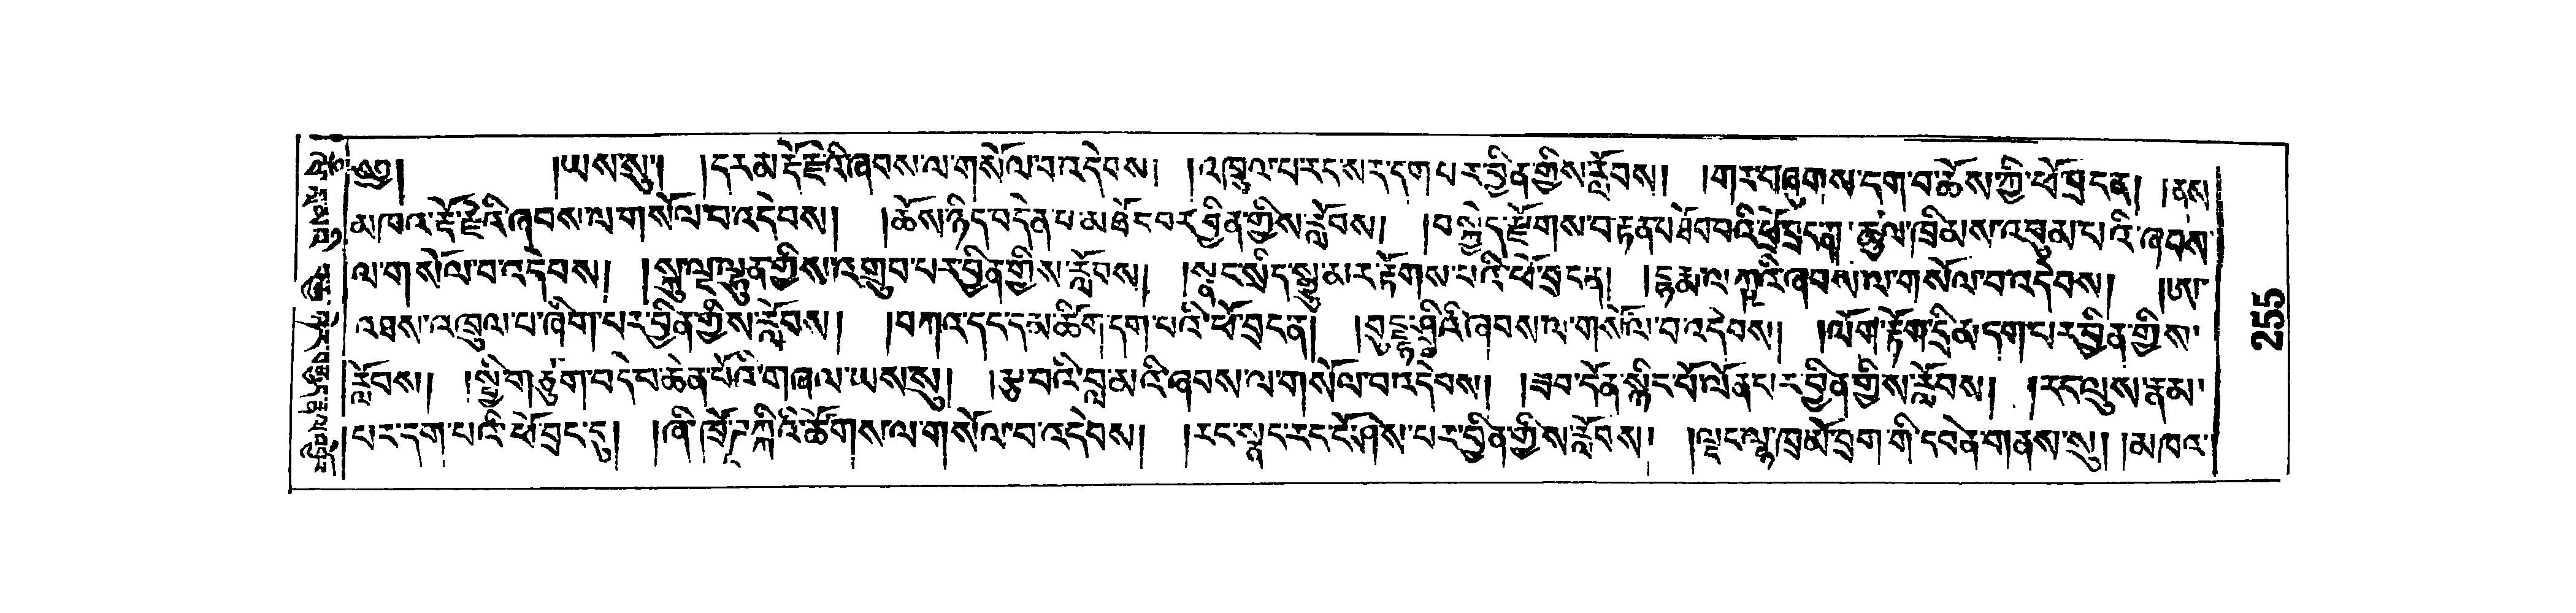 ༄༅། །ཡས་སུ། །དར་མ་རྡོ་རྗེ་འི་ཞབས་ལ་གསོལ་བ་འདེབས། །འཁྲུལ་པ་རང་སར་དག་པར་བྱིན་གྱིས་རློབས། །གར་བཞུགས་དག་བ་ཆོས་ཀྱི་ཕོ་བྲང་ན། །ནམ་
མཁའ་རྡོ་རྗེ་འི་ཞབས་ལ་གསོལ་བ་འདེབས། །ཆོས་ཉིད་བདེན་པ་མཐོང་བར་བྱིན་གྱིས་རློབས། །བསྐྱེད་རྫོགས་བརྟན་པ་ཐོབ་བའི་ཕོ་བྲང་ན། ཚུལ་ཁྲིམས་འབུམ་པ་འི་ཞབས་
ལ་གསོལ་བ་འདེབས། །སྐུ་ལྔ་ལྷུན་གྱིས་འགྲུབ་པར་བྱིན་གྱིས་རློབས། །སྣང་སྲིད་སྒྱུ་མར་རྟོགས་པའི་ཕོ་བྲང་ན། །དྷརྨ་ལ་ཀཱ་འི་ཞབས་ལ་གསོལ་བ་འདེབས། །ཨ་
འཐས་འཁྲུལ་པ་ཞིག་པར་བྱིན་གྱིས་རློབས། །བཀའ་དང་དམ་ཚིག་དག་པའི་ཕོ་བྲང་ན། །བུདྡྷ་ཤྲཱི་འི་ཞབས་ལ་གསོལ་བ་འདེབས། །ལོག་རྟོག་དྲི་མ་དག་པར་བྱིན་གྱིས་
རློབས། །སྤྱི་གཙུག་བདེ་བ་ཆེན་པོའི་གཞལ་ཡས་སུ། །རྩ་བའི་བླ་མའི་ཞབས་ལ་གསོལ་བ་འདེབས། །ཟབ་དོན་སྙིང་པོ་ལོན་པར་བྱིན་གྱིས་རློབས། །རང་ལུས་རྣམ་
པར་དག་པའི་ཕོ་བྲང་དུ། །ཞི་ཁྲོ་ཌཱཀྐིའི་ཚོགས་ལ་གསོལ་བ་འདེབས། །རང་སྣང་རང་ངོ་ཤེས་པར་བྱིན་གྱིས་རློབས། །ལྗང་ལྷ་ཁྲ་མོ་བྲག་གི་དབེན་གནས་སུ། །མཁའ་